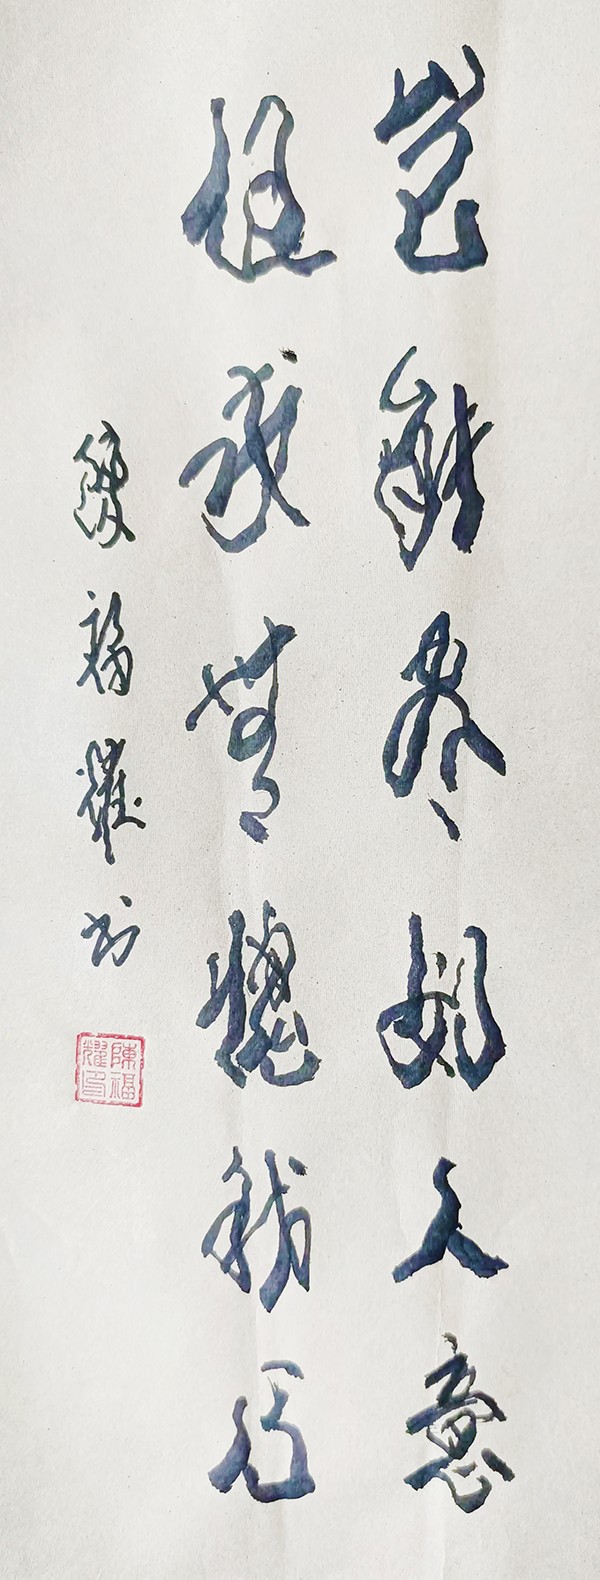 岂能尽如人意
但求无愧我心
陈福耀书
陳福耀印